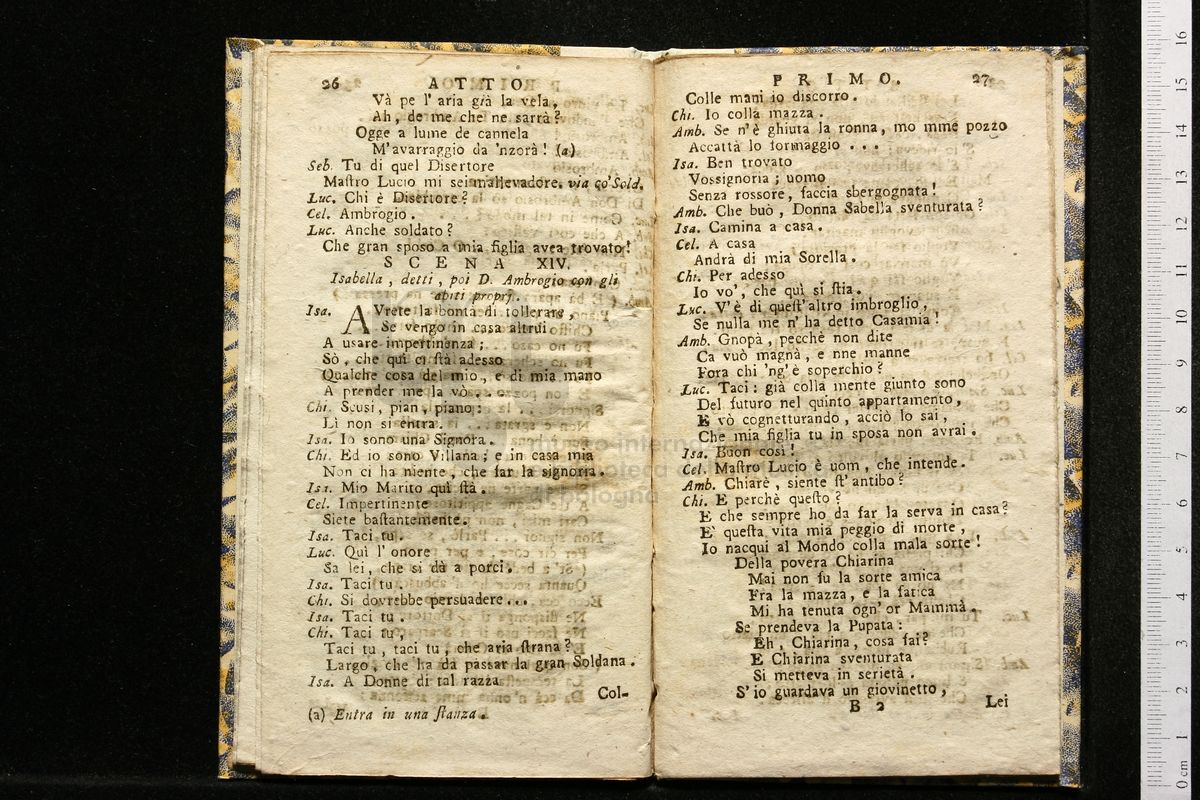 26 ATTO
Và pe l' aria già la vela,
Ah, de me che ne sarrà?
Ogge a lume de cannela
M'avarraggio da 'nzorà! (a)
Seb. Tu di quel Disertore
Maſtro Lucio mi sei mallevadore. via co' Sold.
Luc. Chi è Disertore?
Cel. Ambrogio.
Luc. Anche soldato?
Che gran sposo a mia figlia avea trovato!
SCENA XIV.
Isabella, detti, poi D. Ambrogio con gli
abiti proprj.
Isa. AVrete la bontà di tollerare,
Se vengo in casa altrui
A usare impertinenza;
Sò, che quì ci ſtà adesso
Qualche cosa del mio, e di mia mano
A prender me la vò.
Chi. Scusi, pian, piano:
Lì non si entra.
Isa. Io sono una Signora.
Chi. Ed io sono Villana; e in casa mia
Non ci ha niente, che far la signoria.
Isa. Mio Marito quì ſtà.
Cel. Impertinente
Siete baſtantemente.
Isa. Taci tu.
Luc. Quì l' onore
Sa lei, che si dà a porci.
Isa. Taci tu.
Chi. Si dovrebbe persuadere...
Isa. Taci tu.
Chi. Taci tu,
Taci tu, taci tu, che aria ſtrana?
Largo, che ha da passar la gran Soldana.
Isa. A Donne di tal razza
Col-
(a) Entra in una ſtanza.
PRIMO. 27
Colle mani io discorro.
Chi. Io colla mazza.
Amb. Se n'è ghiuta la ronna, mo mme pozzo
Accattà lo formaggio...
Isa. Ben trovato
Vossignoria; uomo
Senza rossore, faccia sbergognata!
Amb. Che buò, Donna Sabella sventurata?
Isa. Camina a casa.
Cel. A casa
Andrà di mia Sorella.
Chi. Per adesso
Io vo', che quì si ſtia.
Luc. V'è di queſt'altro imbroglio,
Se nulla me n' ha detto Casamia!
Amb. Gnopà, pecchè non dite
Ca vuò magnà, e nne manne
Fora chi 'ng' è soperchio?
Luc. Taci: già colla mente giunto sono
Del futuro nel quinto appartamento,
E vò cognetturando, acciò lo sai,
Che mia figlia tu in sposa non avrai.
Isa. Buon così!
Cel. Maſtro Lucio è uom, che intende.
Amb. Chiarè, siente ſt'antibo?
Chi. E perchè queſto?
E che sempre ho da far la serva in casa?
E' queſta vita mia peggio di morte,
Io nacqui al Mondo colla mala sorte!
Della povera Chiarina
Mai non fu la sorte amica
Fra la mazza, e la fatica
Mi ha tenuta ogn' or Mammà.
Se prendeva la Pupata:
Eh, Chiarina, cosa fai?
E Chiarina sventurata
Si metteva in serietà.
S' io guardava un giovinetto,
B 2 Lei